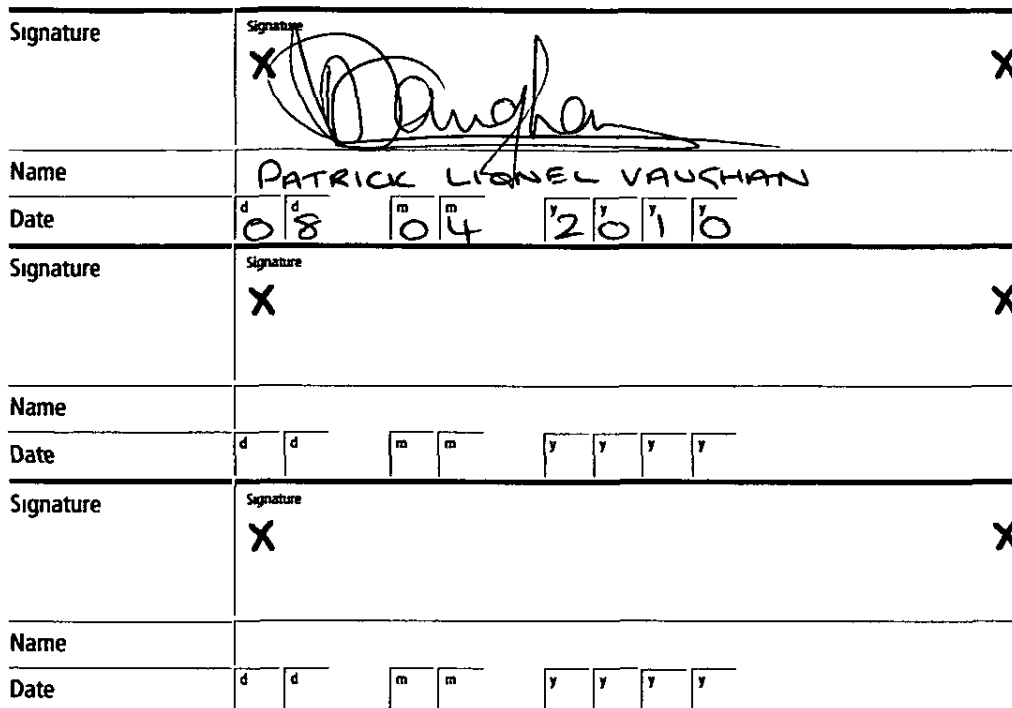 Signature Signature
X Vaughan X
Name PATRICK LIONEL VAUGHAN
Date d 0 d 8 m 0 m 4 y 2 y 0 y 1 y 0
Signature Signature
X X
Name
Date d d m m y y y y
Signature Signature
X X
Name
Date d d m m y y y y